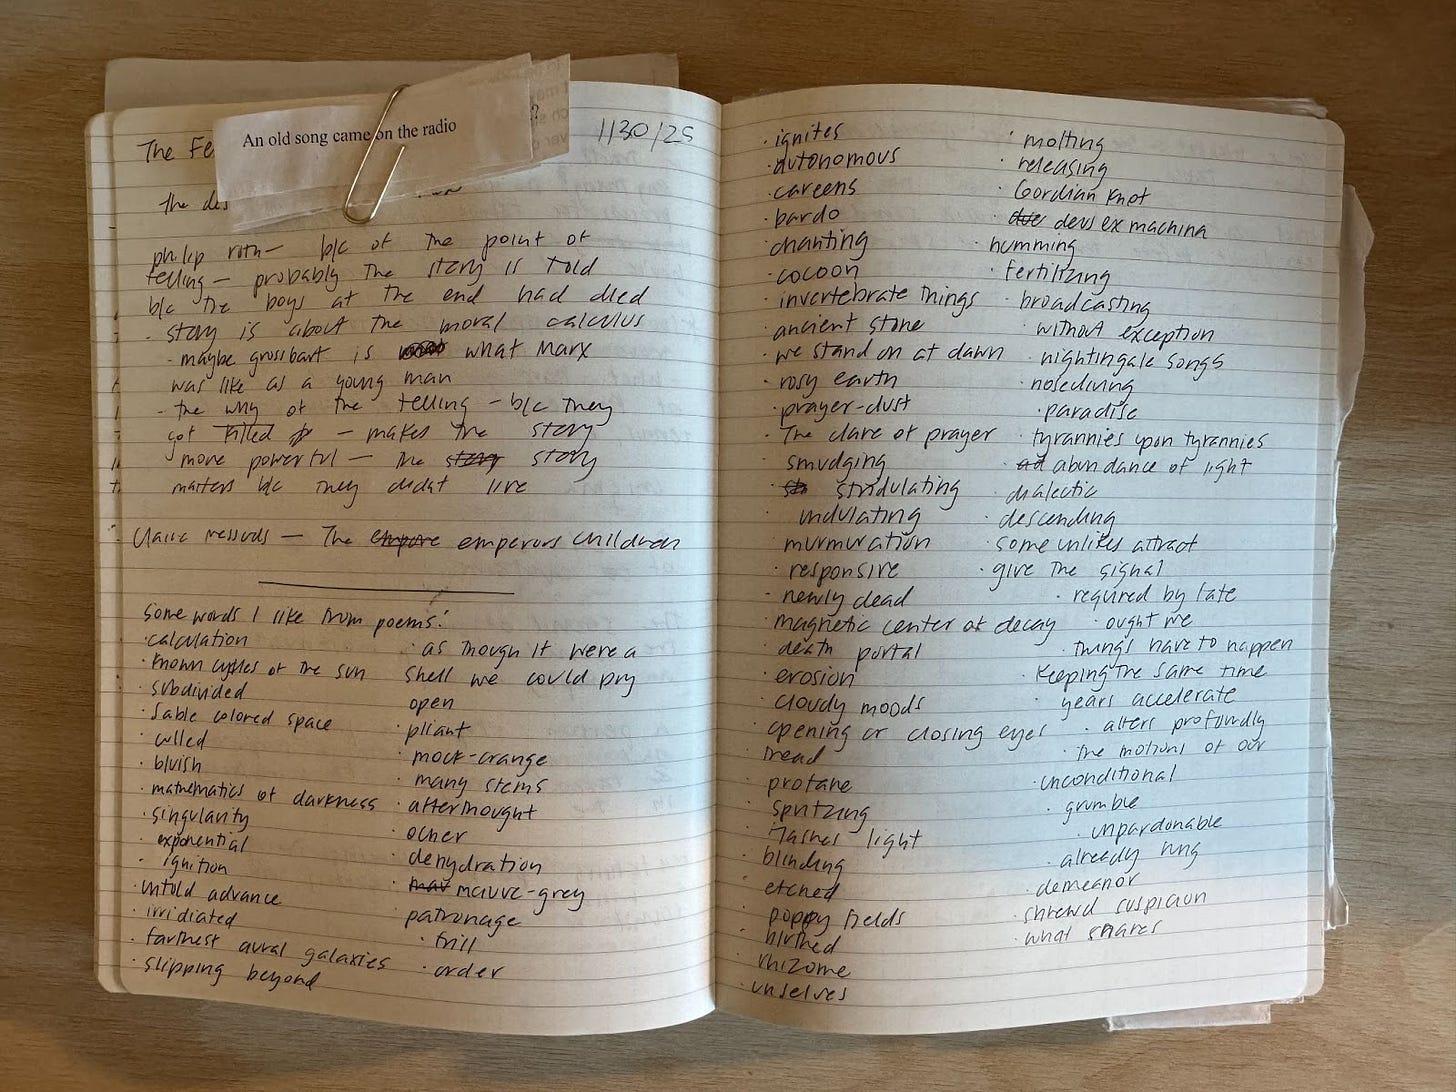 An old song came on the radio
?
The Fe
1/30/25
The des
philip roth — b/c of the point of
telling — probably the story is told
b/c the boys at the end had died
- story is about the moral calculus
- maybe grossbart is what Marx
was like as a young man
- the why of the telling - b/c they
got killed — makes the story
more powerful — the story story
matters b/c they didnt live
Claire messuds — The empire emperors children
some words I like from poems:
· calculation
· known cycles of the sun
· subdivided
· sable colored space
· culled
· bluish
· mathematics of darkness
· singularity
· exponential
· ignition
· untold advance
· irridiated
· farthest aural galaxies
· slipping beyond
· as though it were a
shell we could pry
open
· pliant
· mock-orange
· many stems
· afterthought
· ocher
· dehydration
· mauve-grey
· patronage
· frill
· order
· ignites
· autonomous
· careens
· bardo
· chanting
· cocoon
· invertebrate things
· ancient stone
· we stand on at dawn
· rosy earth
· prayer-dust
· The clare of prayer
· smudging
· stridulating
· undulating
· murmuration
· responsive
· newly dead
· magnetic center of decay
· death portal
· erosion
· cloudy moods
· opening or closing eyes
· tread
· profane
· spritzing
· flashes light
· blinding
· etched
· poppy fields
· birthed
· rhizome
· unselves
· molting
· releasing
· Gordian knot
· due deus ex machina
· humming
· fertilizing
· broadcasting
· without exception
· nightingale songs
· nosediving
· paradise
· tyrannies upon tyrannies
· ad abundance of light
· dialectic
· descending
· some unlikes attract
· give the signal
· required by fate
· ought we
· things have to happen
· keeping the same time
· years accelerate
· alters profoundly
· the motions of our
· unconditional
· grumble
· unpardonable
· already hung
· demeanor
· shrewd suspicion
· what shares